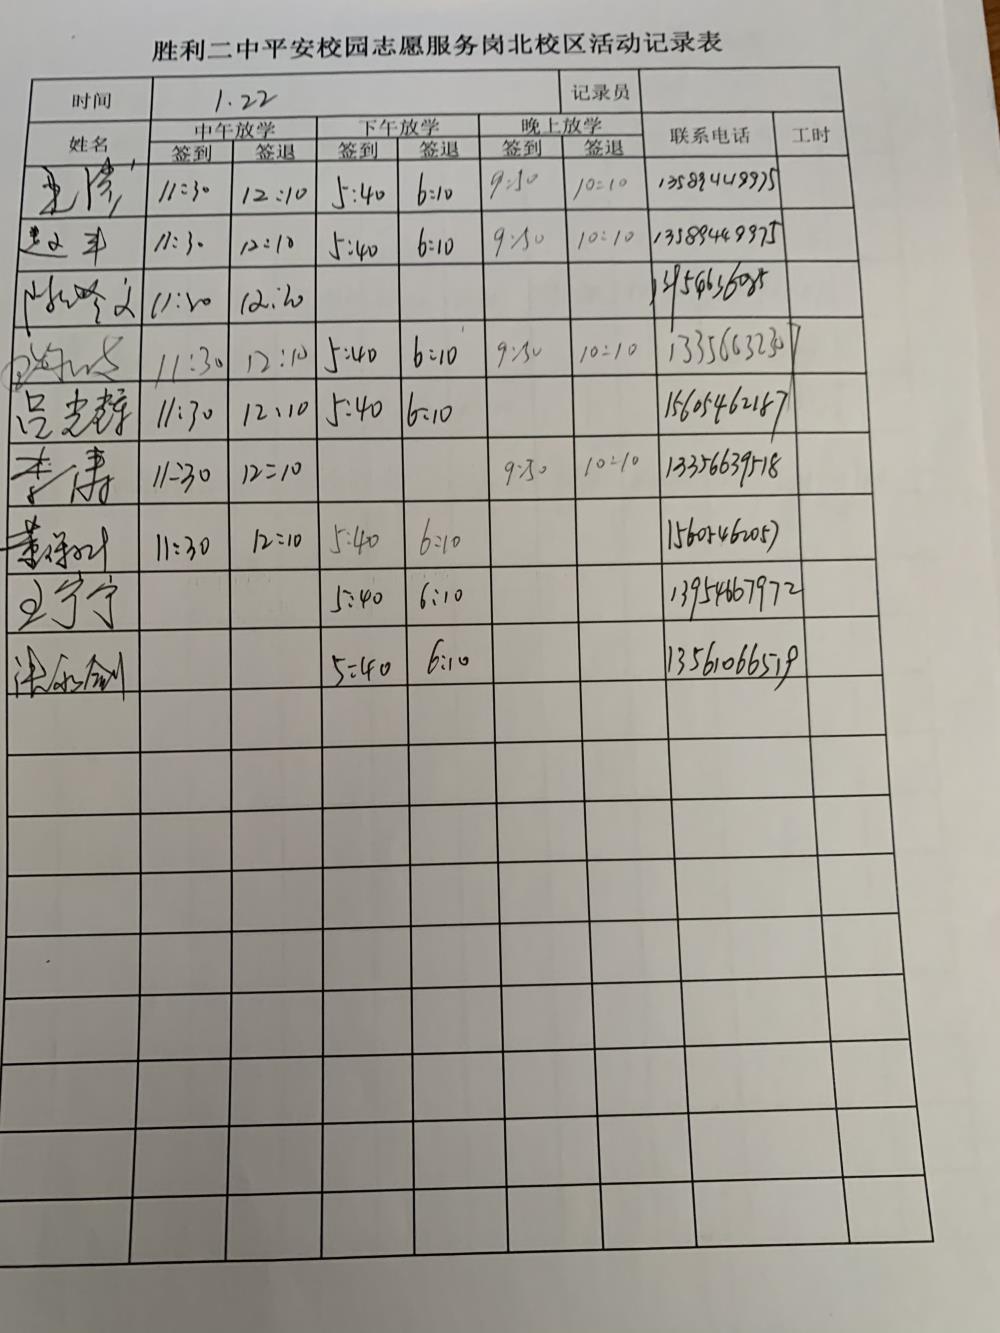 胜利二中平安校园志愿服务岗北校区活动记录表
时间 1.22 记录员
姓名 中午放学 下午放学 晚上放学 联系电话 工时
签到 签退 签到 签退 签到 签退
11:30 12:10 5:40 6:10 9:50 10:10 13589449975
11:30 12:10 5:40 6:10 9:50 10:10 13589449975
11:20 12:20
11:30 12:10 5:40 6:10 9:50 10:10 13356632307
吕 11:30 12:10 5:40 6:10 15605462187
李涛 11:30 12:10 9:50 10:10 13356639518
董 11:30 12:10 5:40 6:10 15605462057
王宁宁 5:40 6:10 13954667972
5:40 6:10 13561066519